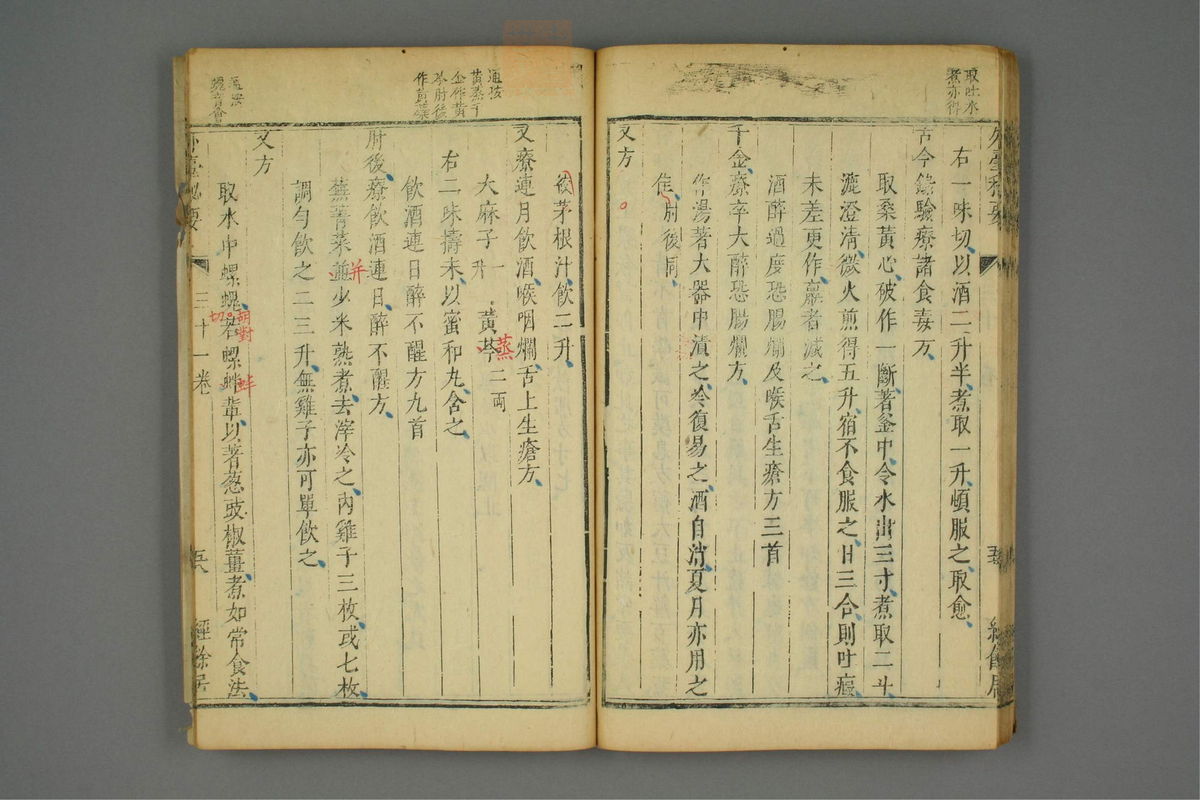 取吐水
煮亦得
右一味切以酒二升半煮取一升頓服之取愈
古今錄驗療諸食毒方
取桑黃心破作一斷著釜中令水出三寸煮取二斗
漉澄清微火煎得五升宿不食服之日三合則吐
未差更作羸者減之
酒醉過度恐腸爛及喉舌生瘡方三首
千金療卒大醉恐腸爛方
作湯著大器中漬之冷復易之酒自消夏月亦用之
佳肘後同
又方
後茅根汁飲二升
又療連月飲酒喉咽爛舌上生瘡方
大麻子一升 黃芩二兩
蒸
右二味擣末以蜜和丸含之
飲酒連日醉不醒方九首
肘後療飲酒連日醉不醒方
蕪菁菜并少米熟煮去滓冷之內雞子三枚或七枚
調勻飲之二三升無雞子亦可單飲之
又方
取水中螺蜆若螺蚌輩以著葱豉椒薑煮如常食法
胡對
切
蚌
通按
黃蒸千
金作黃
芩肘後
作黃蘗
外臺秘要
三十一卷
經餘居